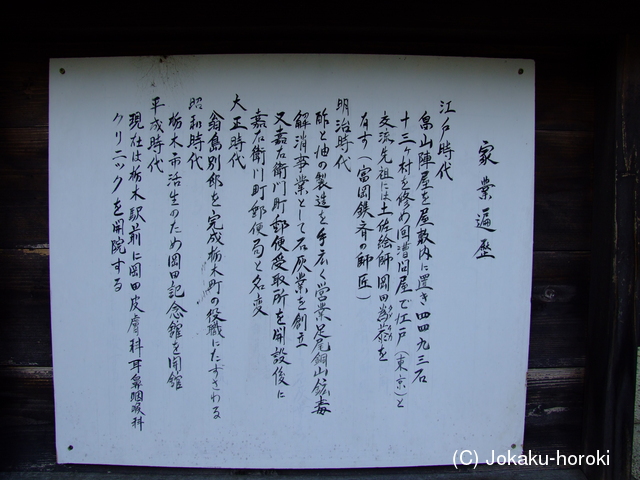 家業遍歴
江戸時代
畠山陣屋を屋敷内に置き四四九三石
十三ヶ村を修め回漕問屋で江戸(東京)と
交流先祖には土佐絵師岡田
を
有す(富岡鉄斉の師匠)
明治時代
酢と油の製造を手広く営業足尾銅山鉱毒
解消事業として石灰業を創立
又嘉右衛川町郵便受取所を開設後に
嘉右衛川町郵便局と名変
大正時代
翁島別邸を完成栃木町の役職にたずさわる
昭和時代
栃木市活生のため岡田記念館を開館
平成時代
現在は栃木駅前に岡田皮膚科耳鼻咽喉科
クリニックを開院する
(C) Jokaku-horoki